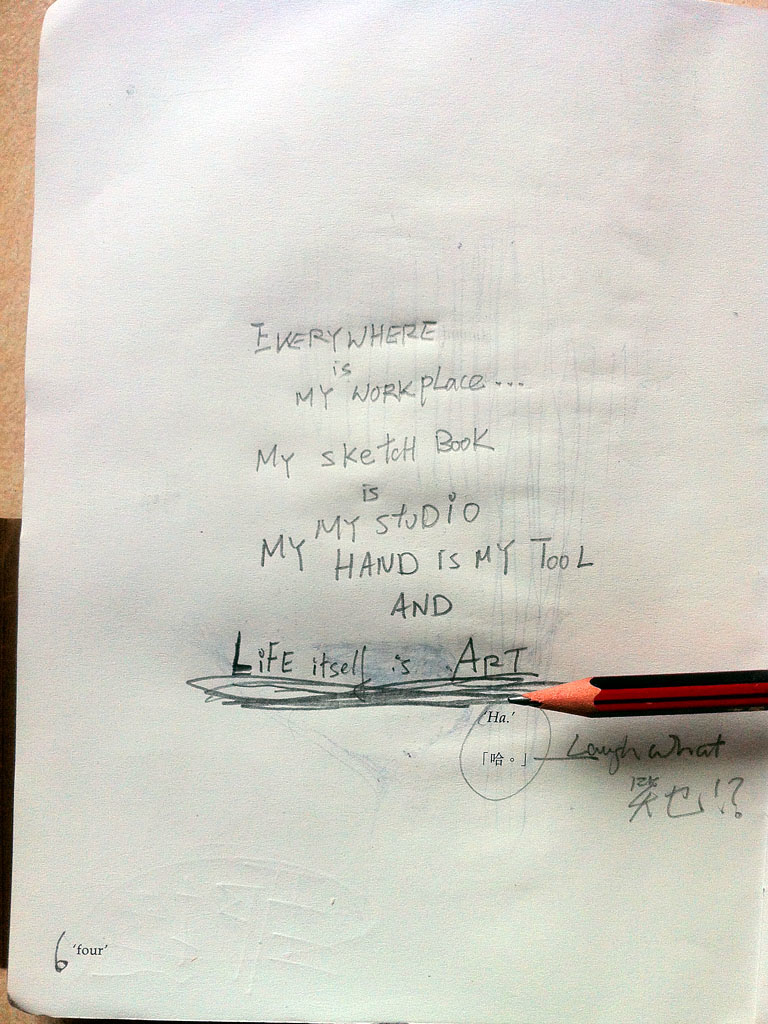 EVERYWHERE
is
MY WORKplace...
MY sketcH BOOK
is
MY StuDiO
MY HAND IS MY TOOL
AND
LiFE itself is ART
'Ha.'
「哈。」 Laugh what
笑乜!?
6 'four'